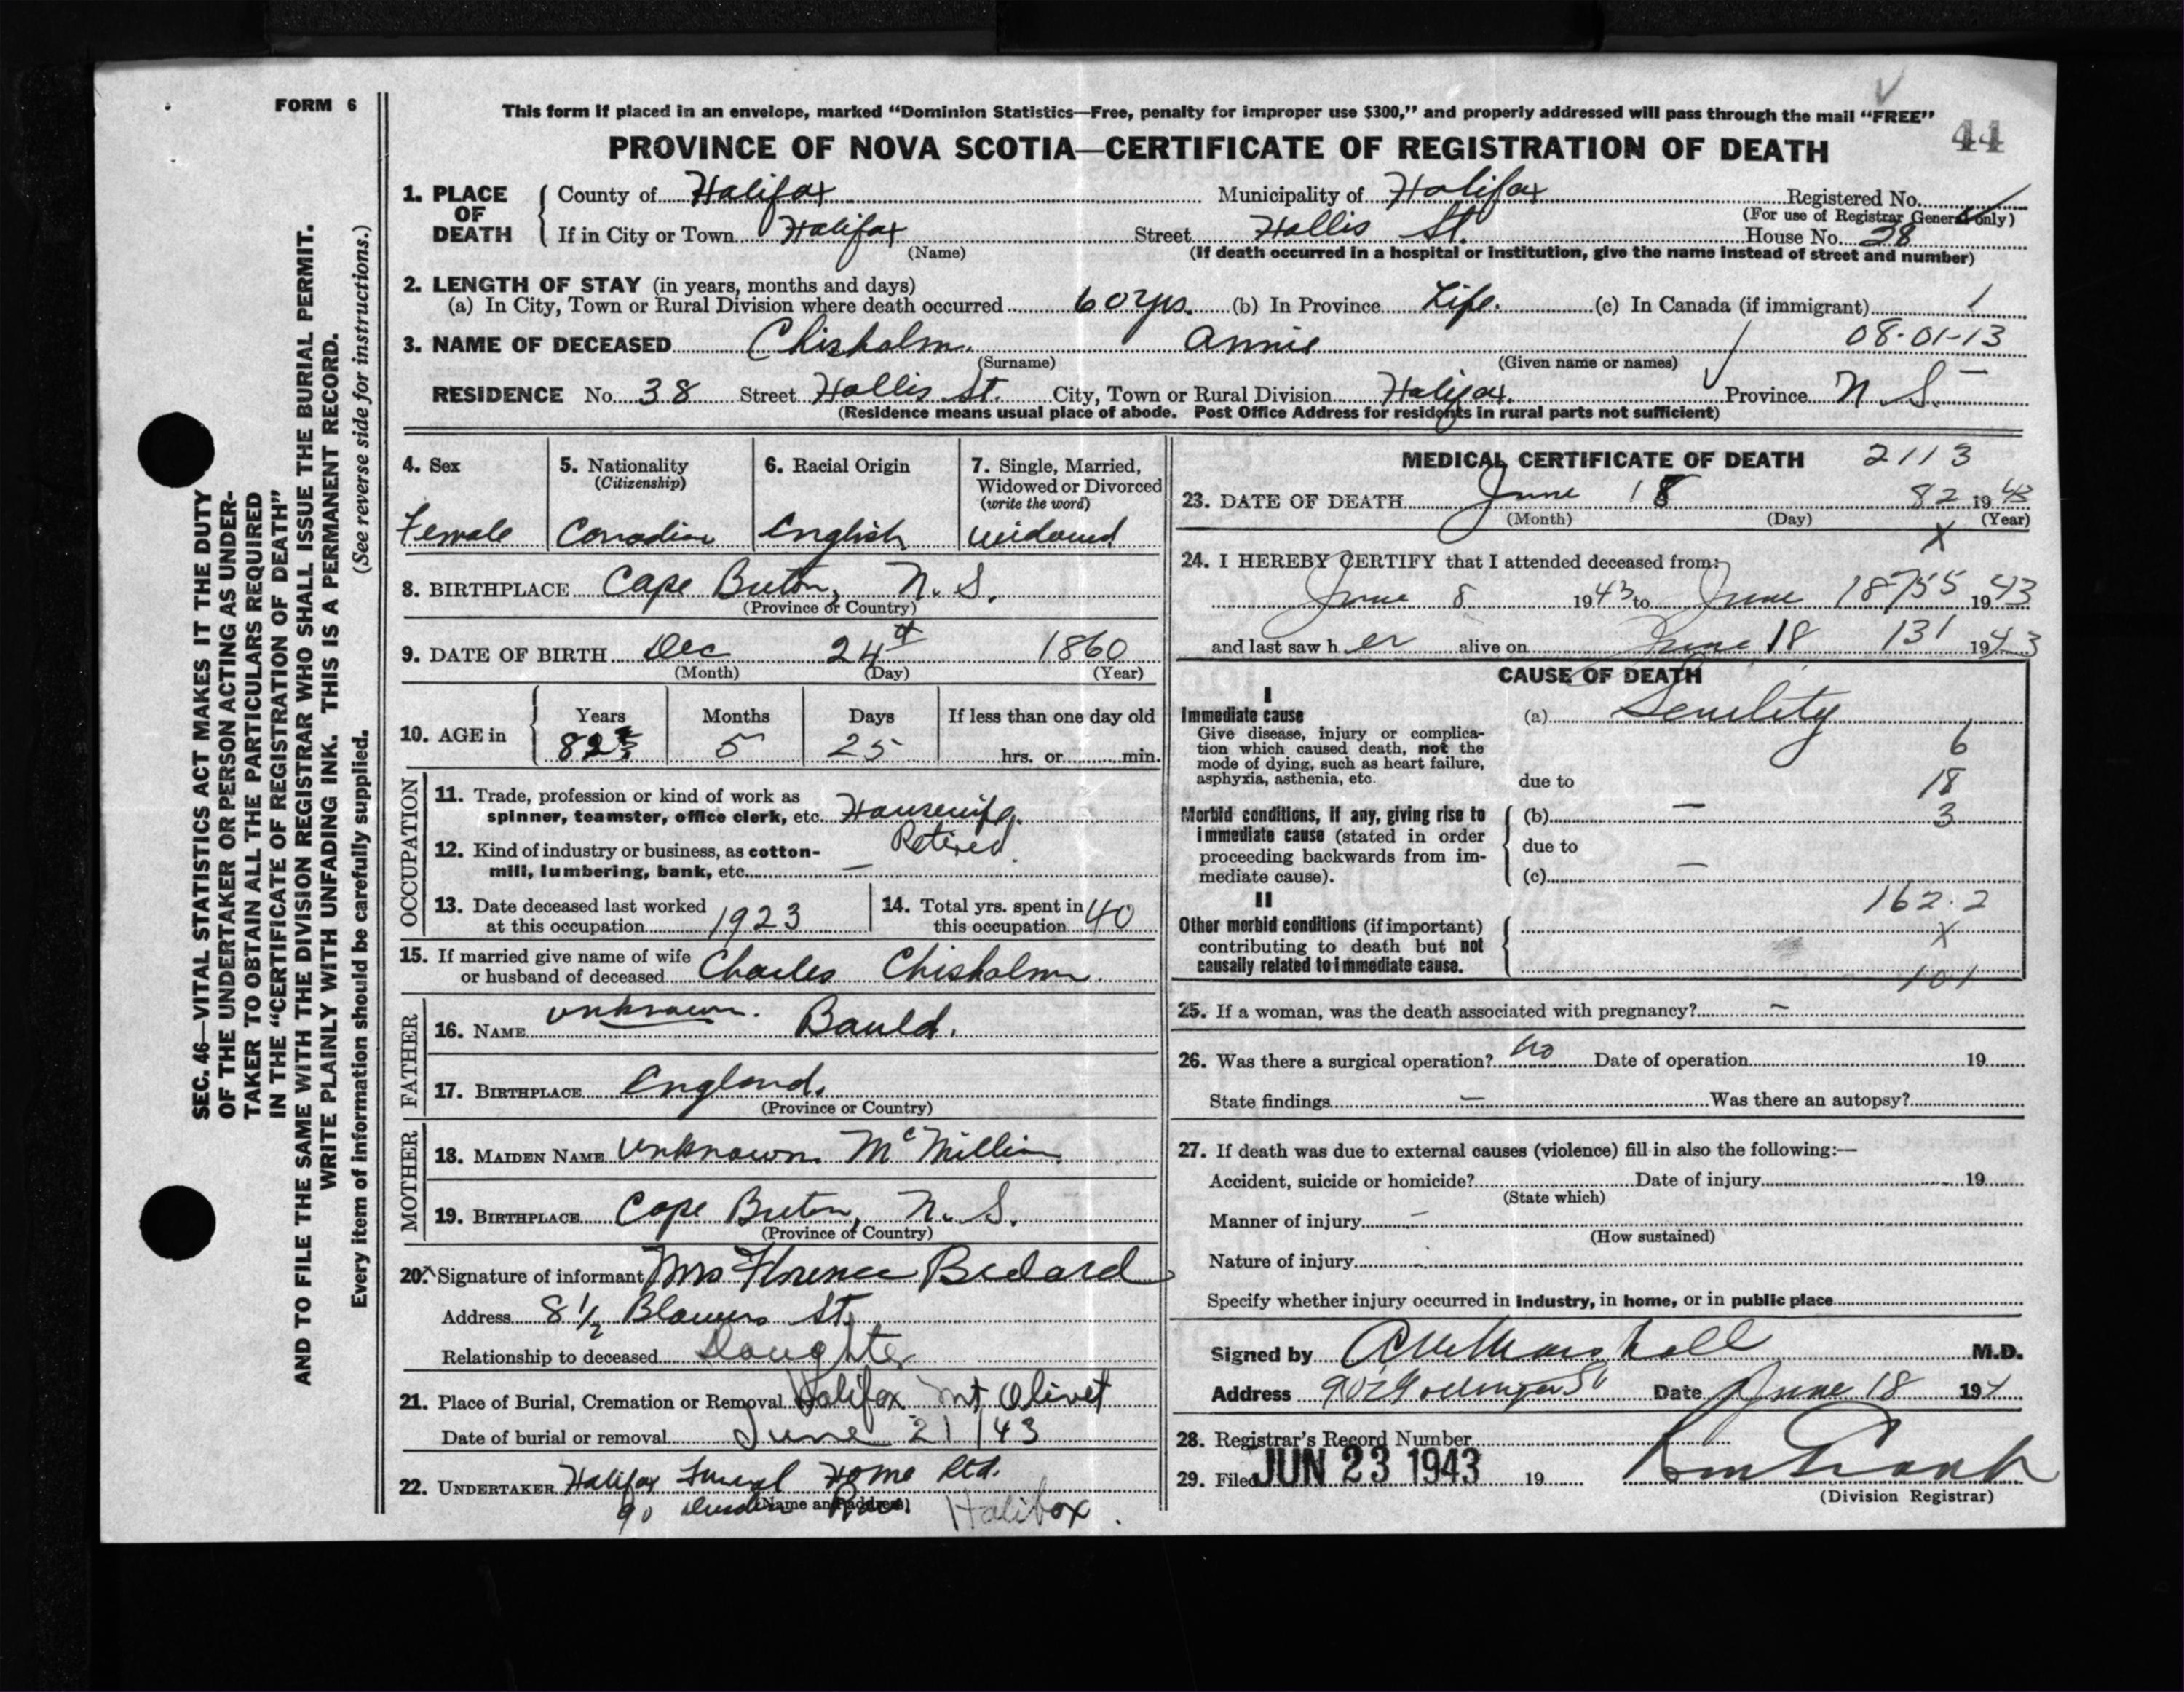 FORM 6
This form if placed in an envelope, marked "Dominion Statistics—Free, penalty for improper use $300," and properly addressed will pass through the mail "FREE"
44
PROVINCE OF NOVA SCOTIA—CERTIFICATE OF REGISTRATION OF DEATH
1. PLACE OF DEATH
County of Halifax Municipality of Halifax Registered No.
(For use of Registrar General only)
If in City or Town Halifax Street Hollis St. House No. 38
(Name) (If death occurred in a hospital or institution, give the name instead of street and number)
2. LENGTH OF STAY (in years, months and days)
(a) In City, Town or Rural Division where death occurred 60 yrs. (b) In Province Life. (c) In Canada (if immigrant) 1
08-01-13
3. NAME OF DECEASED Chisholm. Annie
(Surname) (Given name or names)
RESIDENCE No. 38 Street Hollis St. City, Town or Rural Division Halifax. Province N.S.
(Residence means usual place of abode. Post Office Address for residents in rural parts not sufficient)
4. Sex
Female
5. Nationality
(Citizenship)
Canadian
6. Racial Origin
English
7. Single, Married,
Widowed or Divorced
(write the word)
widowed
8. BIRTHPLACE Cape Breton, N.S.
(Province or Country)
9. DATE OF BIRTH Dec 24th 1860
(Month) (Day) (Year)
10. AGE in
Years Months Days If less than one day old
82 5 25 hrs. or min.
OCCUPATION
11. Trade, profession or kind of work as
spinner, teamster, office clerk, etc. Housewife.
Retired.
12. Kind of industry or business, as cotton-
mill, lumbering, bank, etc. —
13. Date deceased last worked
at this occupation 1923
14. Total yrs. spent in
this occupation 40
15. If married give name of wife
or husband of deceased Charles Chisholm.
FATHER
16. NAME unknown. Bauld.
17. BIRTHPLACE England.
(Province or Country)
MOTHER
18. MAIDEN NAME Unknown McMillian
19. BIRTHPLACE Cape Breton, N.S.
(Province or Country)
20. Signature of informant Mrs Florence Bedard
Address 8 1/2 Blowers St.
Relationship to deceased Daughter
21. Place of Burial, Cremation or Removal Halifax Mt Olivet
Date of burial or removal June 21/43
22. UNDERTAKER Halifax Funeral Home Ltd.
(Name and address)
90 Halifax.
MEDICAL CERTIFICATE OF DEATH 2113
23. DATE OF DEATH June 18 82 1943
(Month) (Day) (Year)
X
24. I HEREBY CERTIFY that I attended deceased from:
June 8 1943 to June 18 755 1943
and last saw her alive on June 18 131 1943
CAUSE OF DEATH
I
Immediate cause
Give disease, injury or complica-
tion which caused death, not the
mode of dying, such as heart failure,
asphyxia, asthenia, etc.
(a) Senility
6
due to 18
Morbid conditions, if any, giving rise to
immediate cause (stated in order
proceeding backwards from im-
mediate cause).
(b) — 3
due to
(c) —
II
162.2
Other morbid conditions (if important)
contributing to death but not
causally related to immediate cause.
X
101
25. If a woman, was the death associated with pregnancy? –
26. Was there a surgical operation? no Date of operation 19
State findings — Was there an autopsy?
27. If death was due to external causes (violence) fill in also the following:—
Accident, suicide or homicide? Date of injury 19
(State which)
Manner of injury –
(How sustained)
Nature of injury
Specify whether injury occurred in industry, in home, or in public place
Signed by Marshall M.D.
Address Date June 18 194
28. Registrar's Record Number
29. Filed JUN 23 1943 19
(Division Registrar)
SEC. 46—VITAL STATISTICS ACT MAKES IT THE DUTY
OF THE UNDERTAKER OR PERSON ACTING AS UNDER-
TAKER TO OBTAIN ALL THE PARTICULARS REQUIRED
IN THE "CERTIFICATE OF REGISTRATION OF DEATH"
AND TO FILE THE SAME WITH THE DIVISION REGISTRAR WHO SHALL ISSUE THE BURIAL PERMIT.
WRITE PLAINLY WITH UNFADING INK. THIS IS A PERMANENT RECORD.
Every item of information should be carefully supplied. (See reverse side for instructions.)